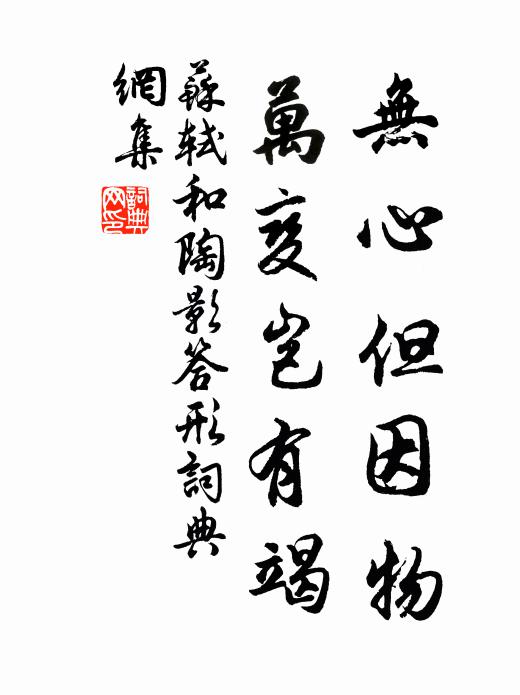 無心但因物
萬變豈有竭
蘇軾和陶影答形詞典
網集
詞典
网印